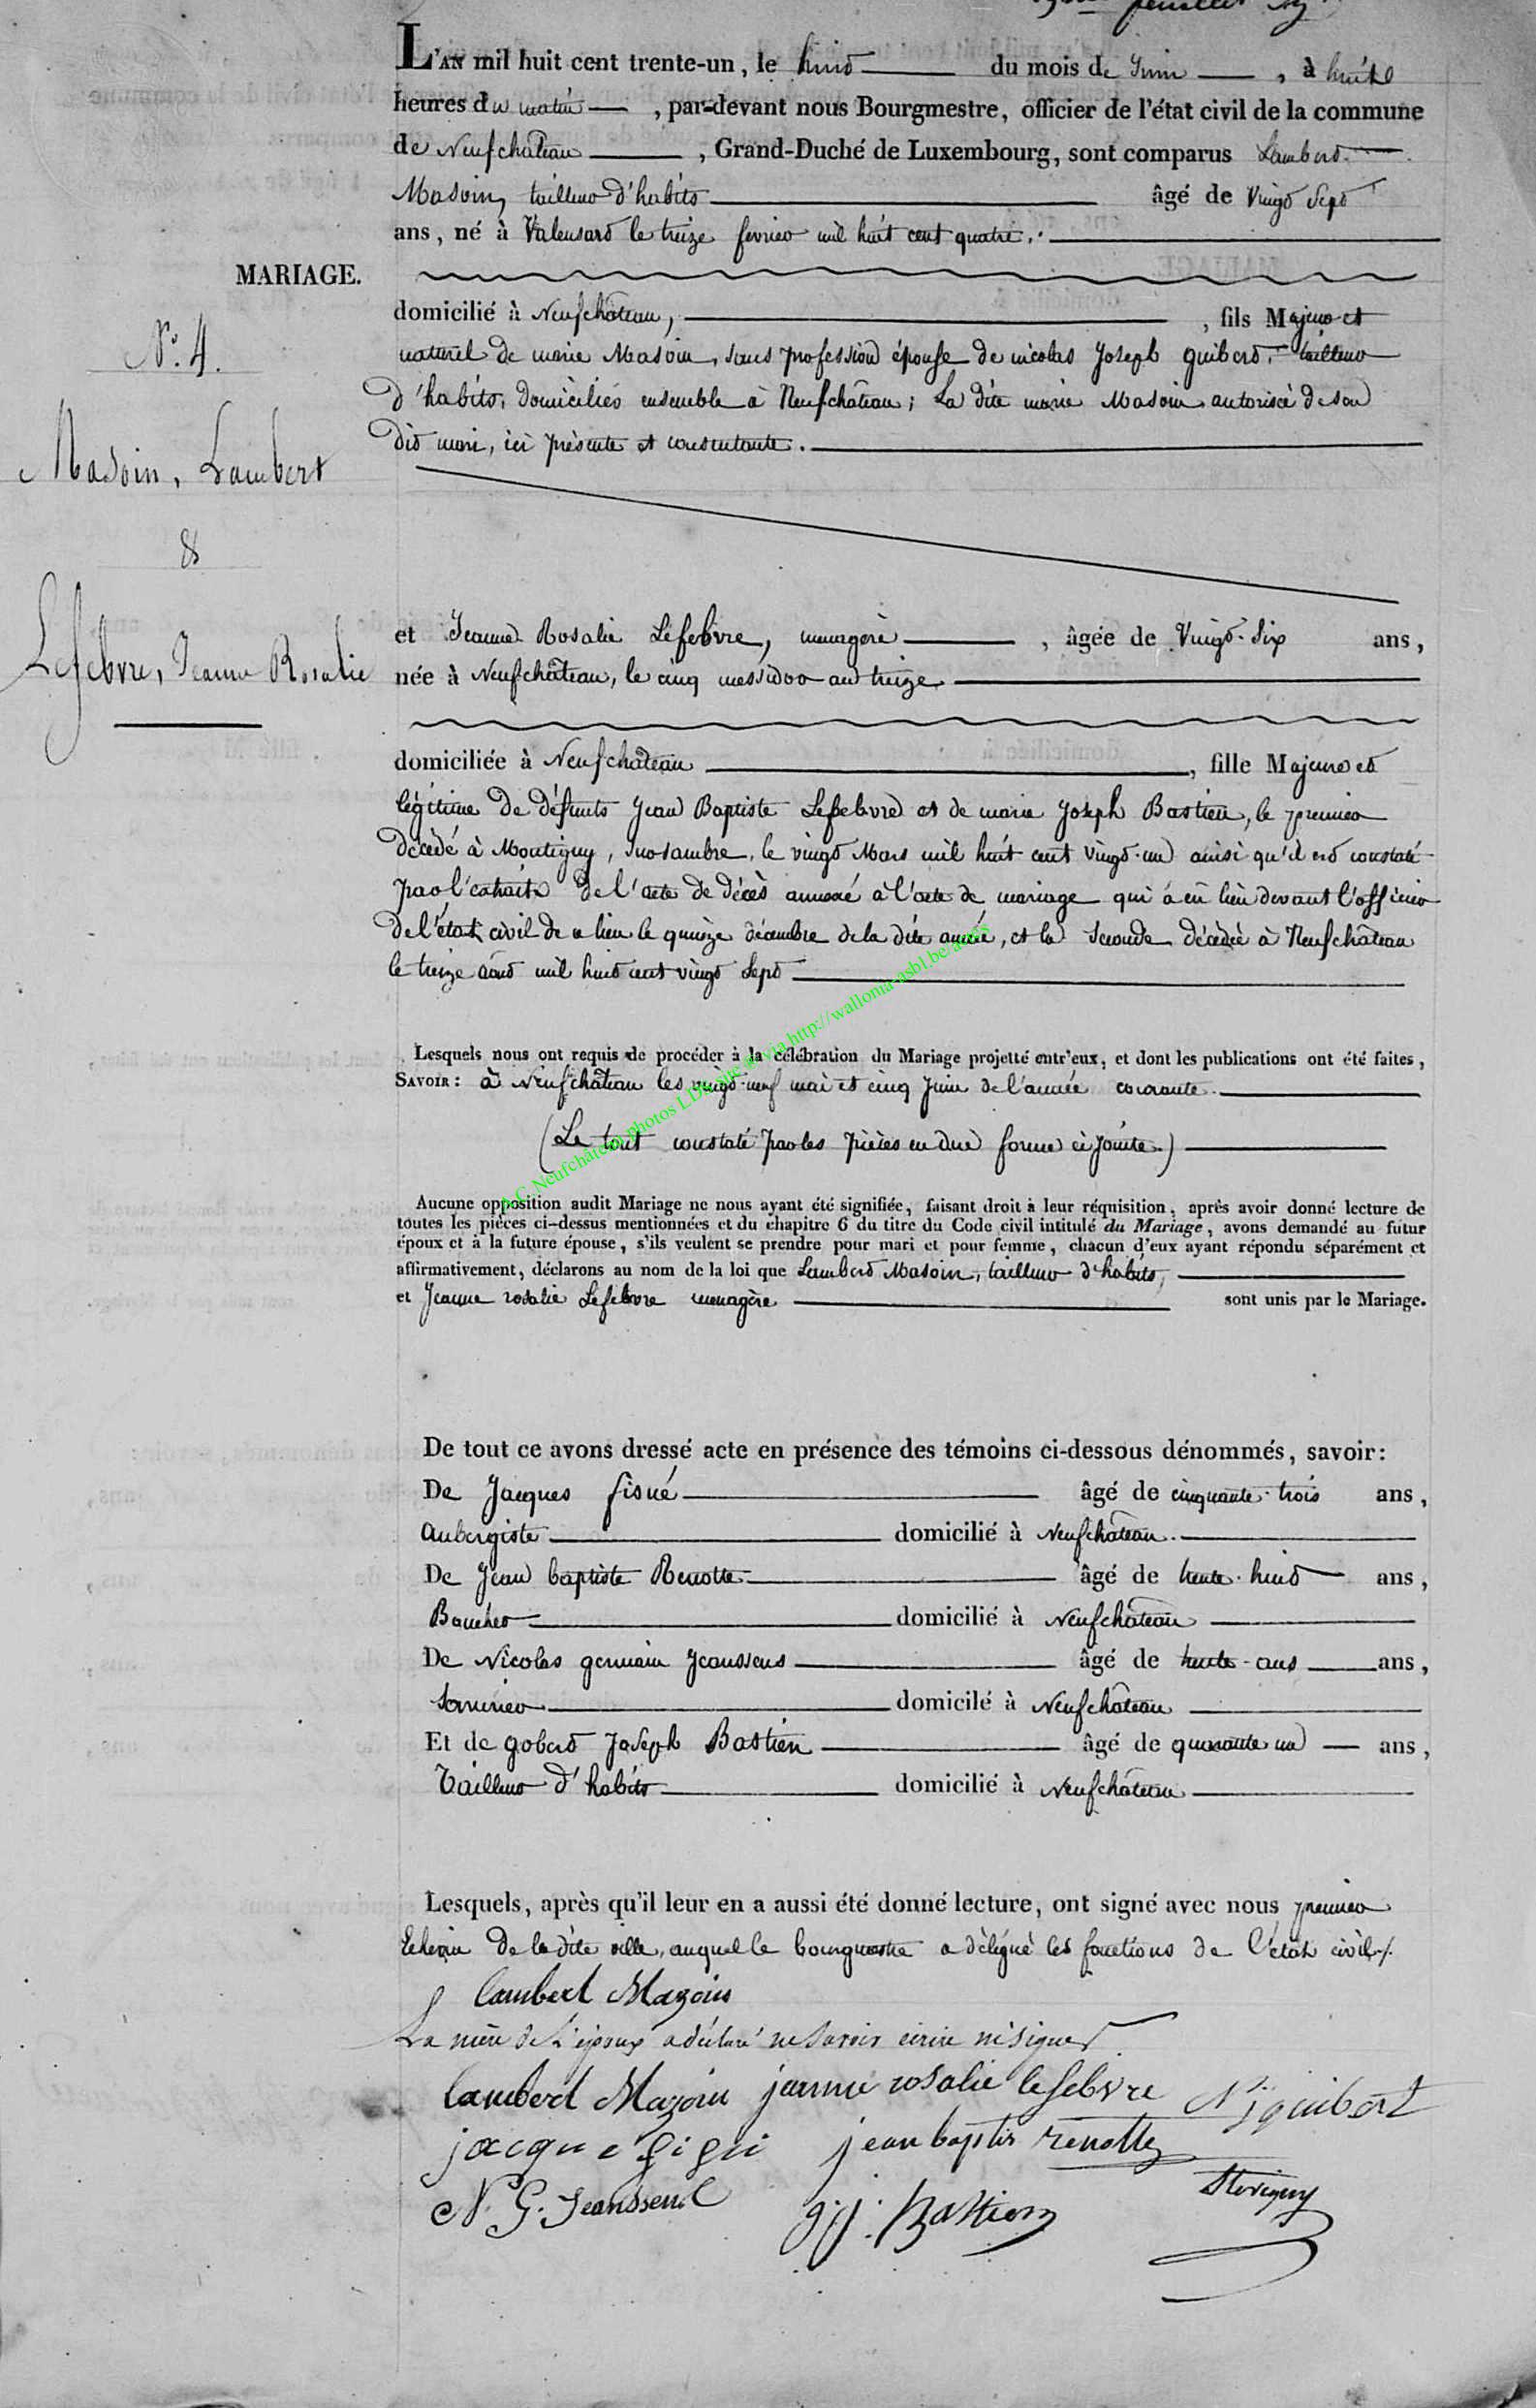 feuillet
L'AN mil huit cent trente-un, le huit du mois de Juin, à huit
heures du matin, par-devant nous Bourgmestre, officier de l'état civil de la commune
de Neufchateau, Grand-Duché de Luxembourg, sont comparus Lambert
Masoin, tailleur d'habits âgé de Vingt Sept
ans, né à Valensart le treize fevrier mil huit cent quatre.
MARIAGE.
domicilié à Neufchâteau, fils Majeur et
N.º 4.
naturel de marie Masoin, sans profession épouse de nicolas Joseph guibert, tailleur
d'habits, domiciliés ensemble à Neufchâteau; La dite marie Masoin autorisée de son
dit mari, ici présente et consentante.
Masoin, Lambert
&
Lefebvre, Jeanne Rosalie
et Jeanne Rosalie Lefebvre, menagère, âgée de Vingt-Six ans,
née à Neufchâteau, le cinq messidor an treize
domiciliée à Neufchateau, fille Majeure et
légitime de défunts Jean Baptiste Lefebvre et de marie Joseph Bastien, le premier
décédé à Montigny, sur sambre, le vingt Mars mil huit cent vingt-un ainsi qu'il est constaté
par l'extrait de l'acte de décès annexé à l'acte de mariage qui a eu lieu devant l'officier
de l'état civil de ce lieu le quinze décembre de la dite année, et la seconde décédée à Neufchâteau
le treize aout mil huit cent vingt sept
A.C. Neufchâteau photos LDS site via http://walloma-asbl.be/actes
Lesquels nous ont requis de procéder à la célébration du Mariage projetté entr'eux, et dont les publications ont été faites,
SAVOIR: à Neufchâteau les vingt-neuf mai et cinq Juin de l'année courante.
(Le tout constaté par les pièces en due forme ci jointe.)
Aucune opposition audit Mariage ne nous ayant été signifiée, faisant droit à leur réquisition, après avoir donné lecture de
toutes les pièces ci-dessus mentionnées et du chapitre 6 du titre du Code civil intitulé du Mariage, avons demandé au futur
époux et à la future épouse, s'ils veulent se prendre pour mari et pour femme, chacun d'eux ayant répondu séparément et
affirmativement, déclarons au nom de la loi que Lambert Masoin, tailleur d'habits,
et Jeanne rosalie Lefebvre menagère sont unis par le Mariage.
De tout ce avons dressé acte en présence des témoins ci-dessous dénommés, savoir:
De Jacques âgé de cinquante-trois ans,
Aubergiste domicilié à Neufchâteau.
De Jean baptiste Renotte âgé de trente-huit ans,
Boucher domicilié à Neufchâteau
De Nicolas germain Jeanssens âgé de trente-ans ans,
domicilé à Neufchâteau
Et de gobert Joseph Bastien âgé de quarante un ans,
Tailleur d'habits domicilié à Neufchâteau
Lesquels, après qu'il leur en a aussi été donné lecture, ont signé avec nous premier
Echevin de la dite ville, auquel le bourgmestre a délégué les fonctions de l'état civil.
lambert Mazoin
La mère de L'époux a déclaré ne savoir écrire ni signer
lambert Mazoin jeanne rosalie lefebvre N j guibert
jacque jean baptis renotte
N. G. Jeanssens g: j: Bastien